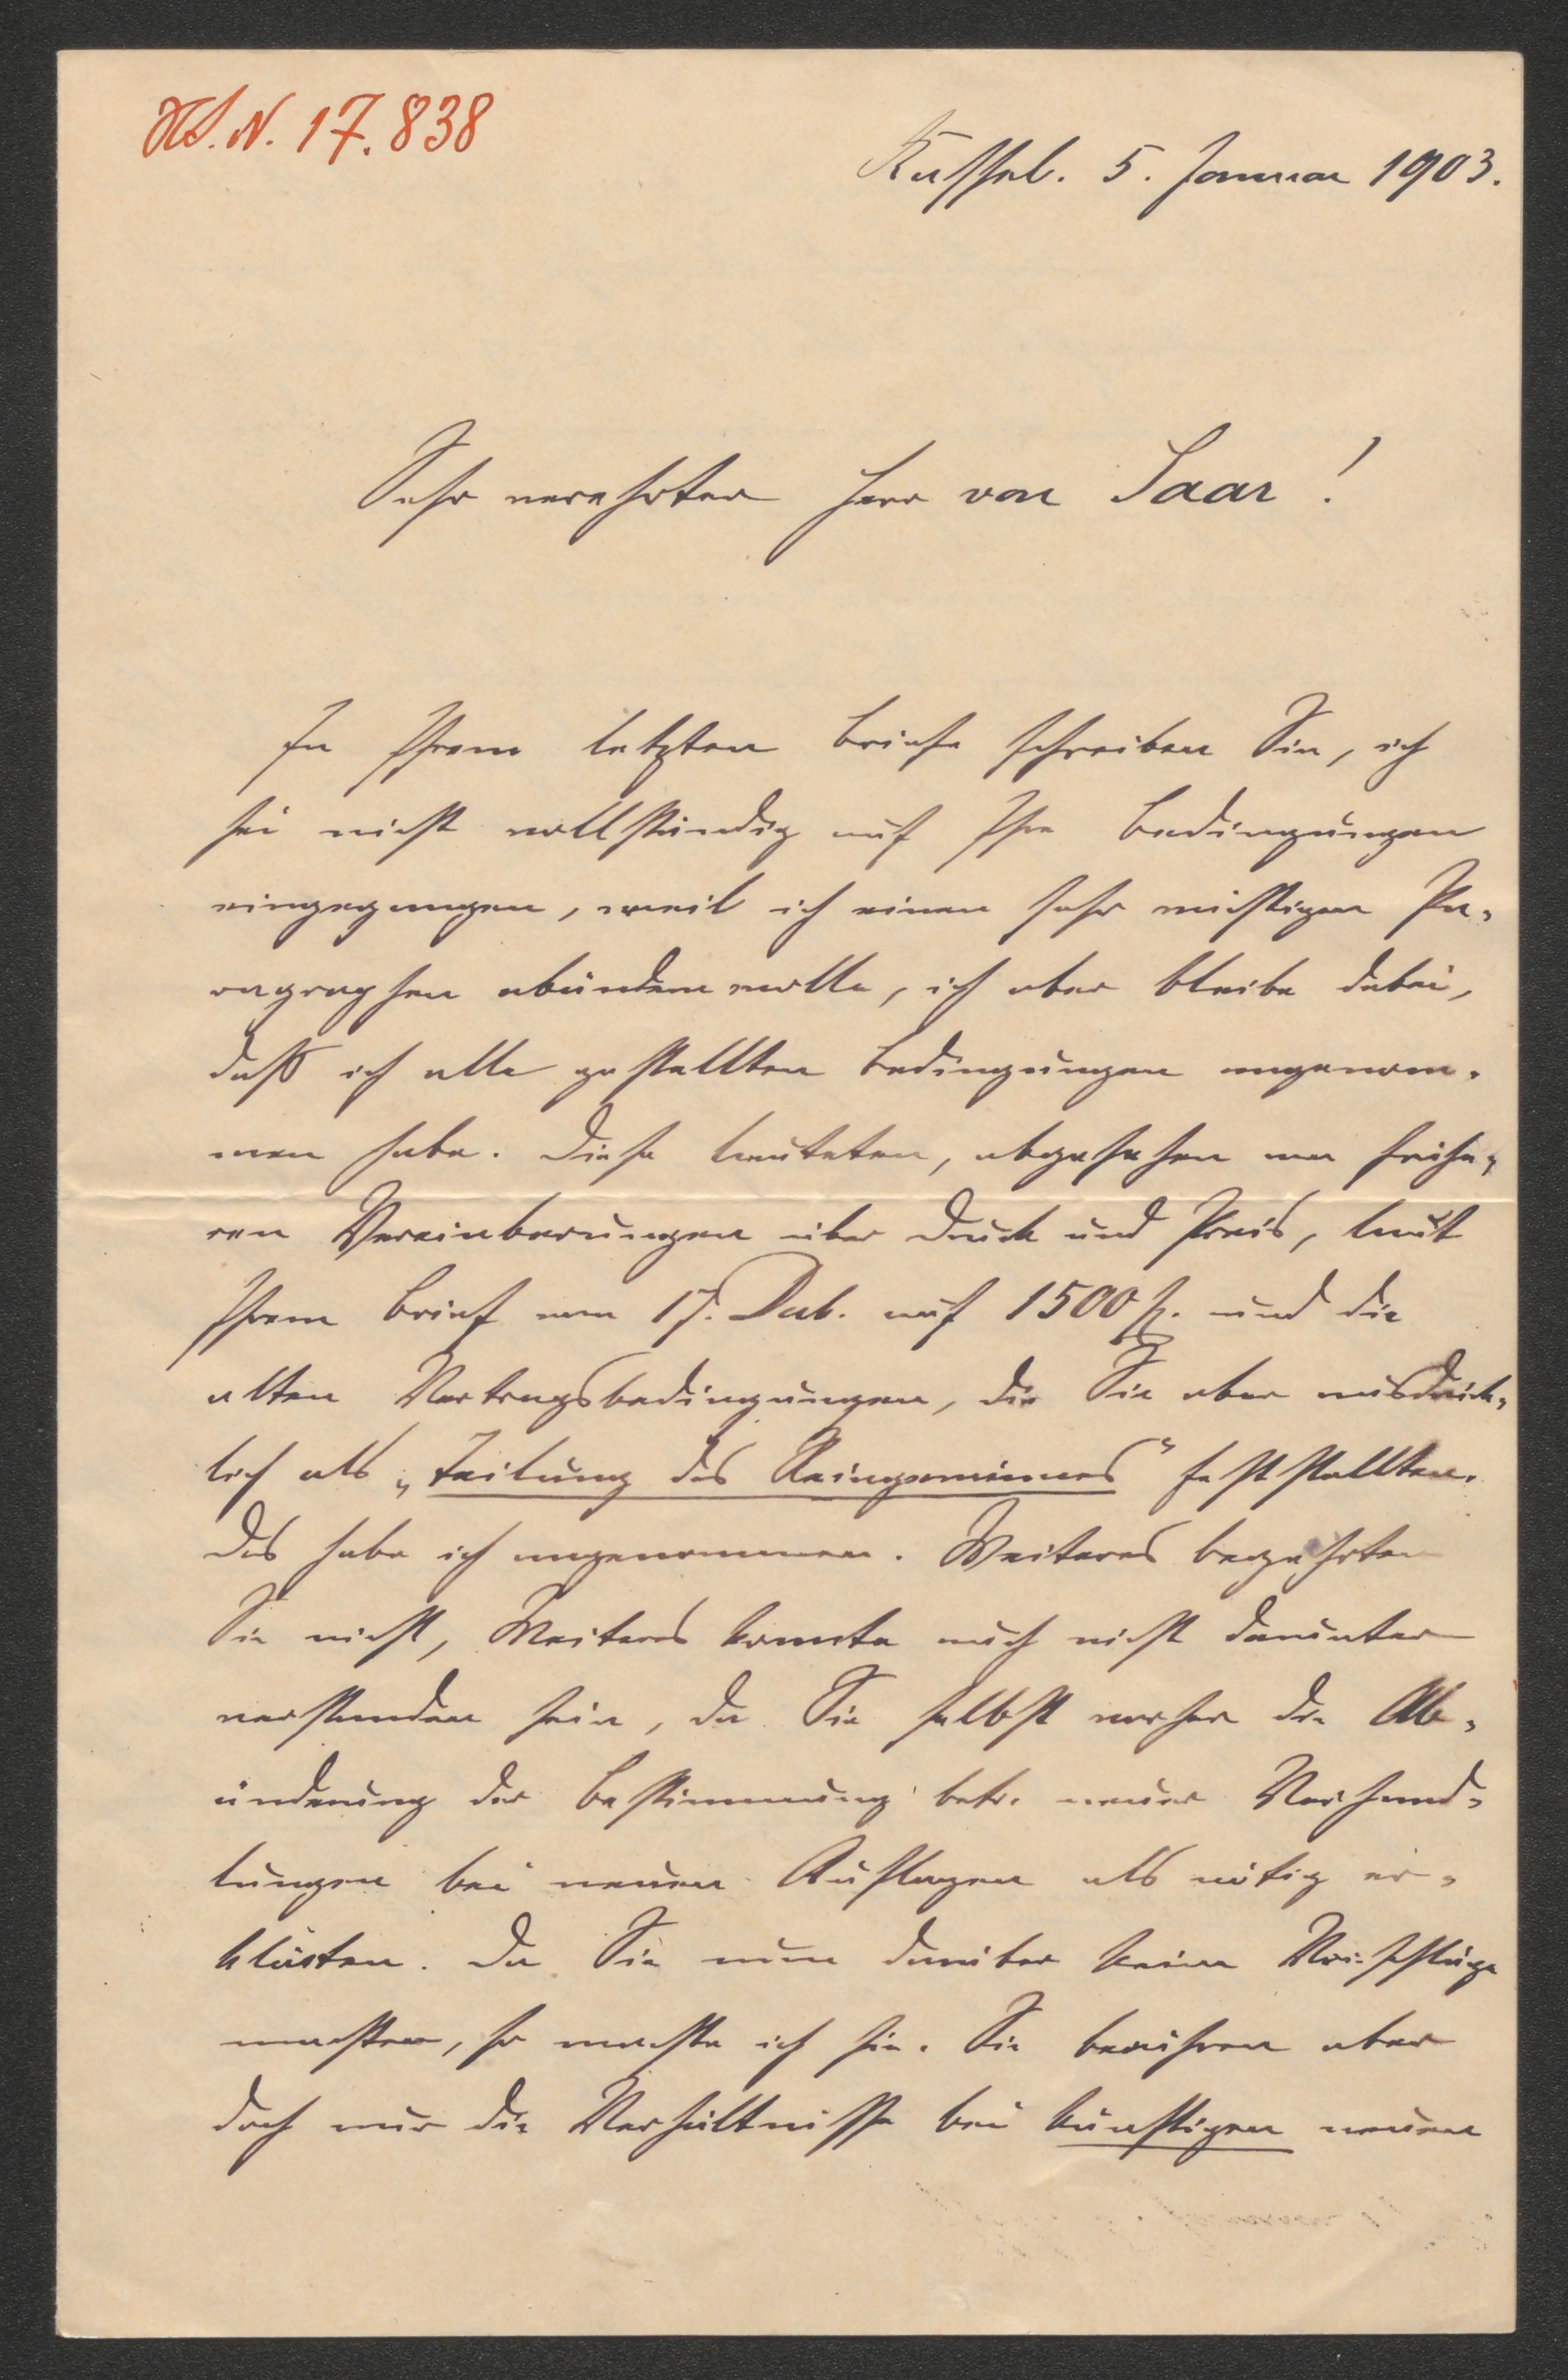 H.S.N. 17.838
Kassel. 5. Januar 1903.
Sehr verehrter Herr von Saar!
In Ihrem letzten Briefe schreiben Sie, ich
sei nicht vollständig auf Ihre Bedingungen
eingegangen, weil ich einen sehr wichtigen Pa-
ragraphen abändern wolle, ich aber bleibe dabei,
daß ich alle gestellten Bedingungen angenom-
men habe. Diese lauteten, abgesehen von frühe-
ren Vereinbarungen über Druck und Preis, laut
Ihrem Brief vom 17. Dec. auf 1500 fl. und die
alten Vertragsbedingungen, die Sie aber ausdrück-
lich als „Teilung des Reingewinnes" feststellten.
Das habe ich angenommen. Weiteres begehrten
Sie nicht, Weiteres konnte auch nicht darunter
verstanden sein, da Sie selbst vorher die Ab-
änderung der Bestimmung betr. neuer Verhand-
lungen bei neuen Auflagen als nötig er-
klärten. Da Sie nun darüber keine Vorschläge
machten, so machte ich sie. Sie berühren aber
doch nur die Verhältnisse bei künftigen neuen